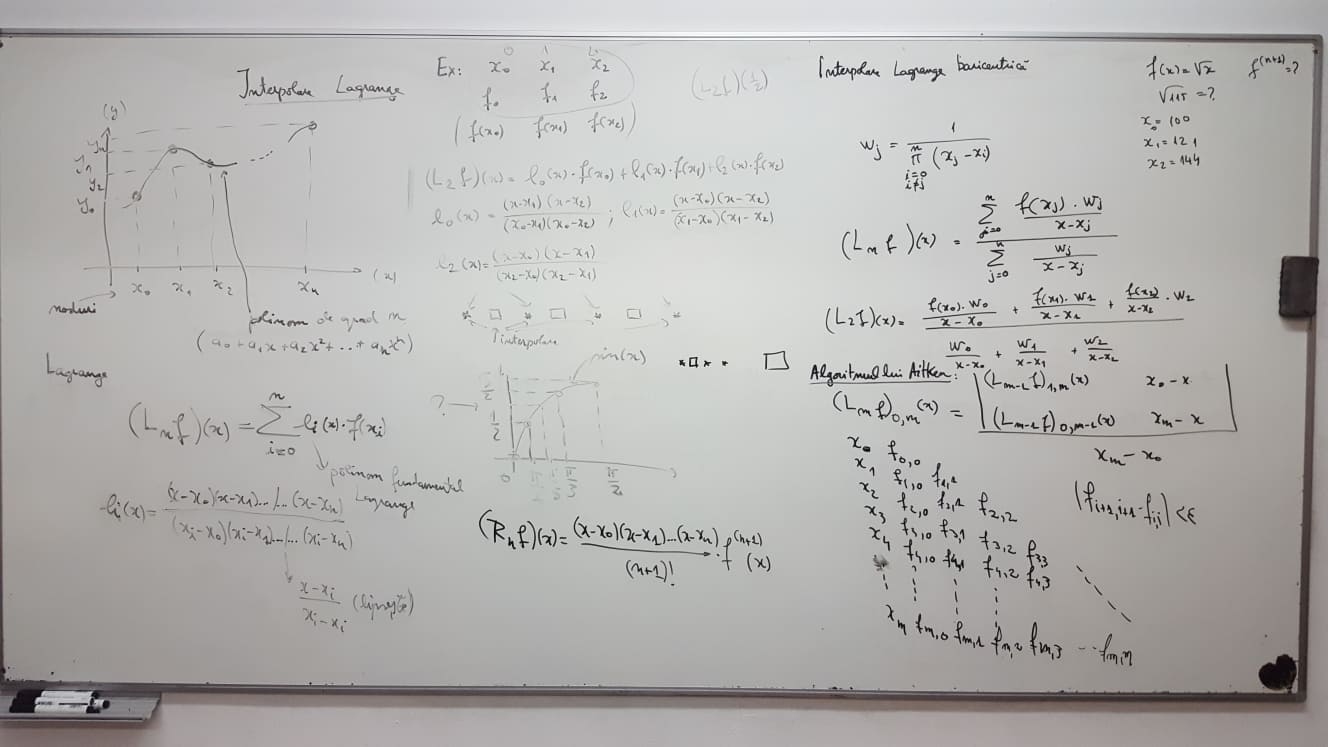 Interpolare Lagrange
(y)
yₙ
y₁
y₂
y₀
x₀ x₁ x₂ xₙ (x)
noduri
polinom de grad n
(a₀ + a₁x + a₂x² + ... + aₙxⁿ)
Lagrange
(Lₙf)(x) = ∑ᵢ₌₀ⁿ ℓᵢ(x)·f(xᵢ)
polinom fundamental
Lagrange
ℓᵢ(x) = (x-x₀)(x-x₁).../...(x-xₙ) / (xᵢ-x₀)(xᵢ-x₁).../...(xᵢ-xₙ)
x-xᵢ / xᵢ-xᵢ (lipsește)
Ex: x₀ x₁ x₂
f₀ f₁ f₂
(f(x₀) f(x₁) f(x₂))
(L₂f)(1/2)
(L₂f)(x) = ℓ₀(x)·f(x₀) + ℓ₁(x)·f(x₁) + ℓ₂(x)·f(x₂)
ℓ₀(x) = (x-x₁)(x-x₂) / (x₀-x₁)(x₀-x₂) ; ℓ₁(x) = (x-x₀)(x-x₂) / (x₁-x₀)(x₁-x₂)
ℓ₂(x) = (x-x₀)(x-x₁) / (x₂-x₀)(x₂-x₁)
interpolare
sin(x)
?
1/2
0 π/3 π/2
(Rₙf)(x) = (x-x₀)(x-x₁)...(x-xₙ) / (n+1)! · f⁽ⁿ⁺¹⁾(x)
Interpolare Lagrange baricentrică
f(x) = √x f⁽ⁿ⁺¹⁾ = ?
√115 = ?
x₀ = 100
x₁ = 121
x₂ = 144
wⱼ = 1 / ∏ᵢ₌₀, ᵢ≠ⱼⁿ (xⱼ - xᵢ)
(Lₙf)(x) = ∑ⱼ₌₀ⁿ f(xⱼ)·wⱼ / x-xⱼ / ∑ⱼ₌₀ⁿ wⱼ / x-xⱼ
(L₂f)(x) = f(x₀)·w₀ / x-x₀ + f(x₁)·w₁ / x-x₁ + f(x₂) / x-x₂ · w₂
w₀ / x-x₀ + w₁ / x-x₁ + w₂ / x-x₂
Algoritmul lui Aitken:
(Lₘf)₀,ₘ(x) = | (Lₘ₋₁f)₁,ₘ(x) x₀-x
(Lₘ₋₁f)₀,ₘ₋₁(x) xₘ-x |
xₘ-x₀
x₀ f₀,₀
x₁ f₁,₀ f₁,₁
x₂ f₂,₀ f₂,₁ f₂,₂
x₃ f₃,₀ f₃,₁ f₃,₂ f₃,₃
x₄ f₄,₀ f₄,₁ f₄,₂ f₄,₃
xₘ fₘ,₀ fₘ,₁ fₘ,₂ fₘ,₃ ... fₘ,ₘ
|fᵢ₊₁,ᵢ₊₁ - fᵢ,ᵢ| < ε